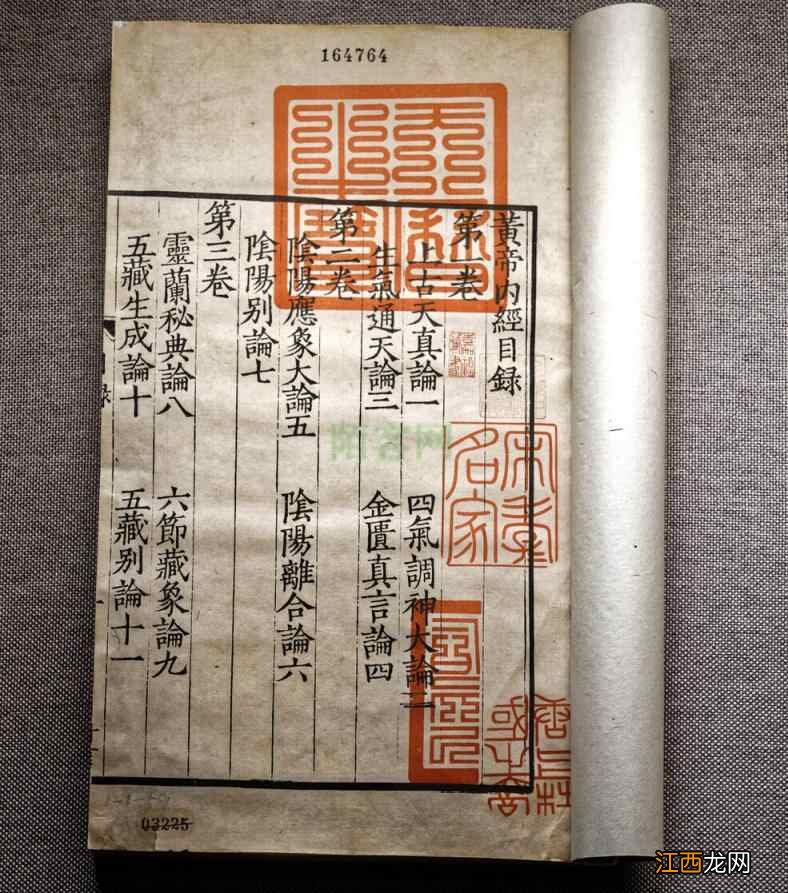 164764
黃帝內經目録
第一卷
上古天真論一 四氣調神大論二
生氣通天論三 金匱真言論四
第二卷
陰陽應象大論五 陰陽離合論六
陰陽别論七
第三卷
靈蘭秘典論八 六節藏象論九
五藏生成論十 五藏别論十一
名家
03225
陌客网
江西龙网